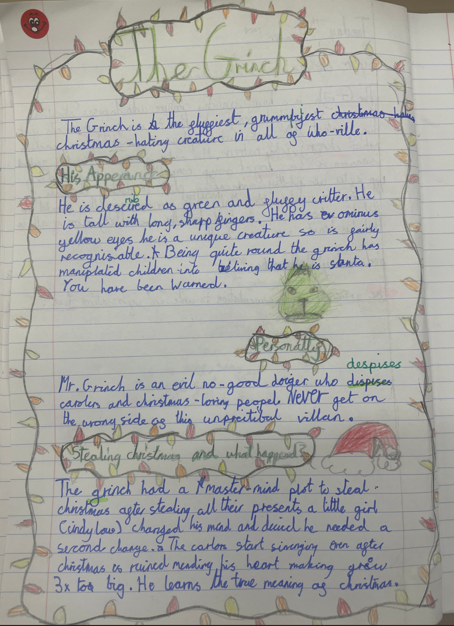 The Grinch
The Grinch is the fluffiest, grummpyest christmas hating
christmas -hating creature in all of who-ville.
His Apperance
He is descired as green and fluffy critter. He
is tall with long, sharp fingers. He has ominus
yellow eyes he is a unique creature so is fairly
recognisable. Being quite round the grinch has
maniplated children into beliving that he is santa.
You have been warned.
Personatly
despises
Mr. Grinch is an evil no-good doiger who dispises
carolers and christmas-loving peopel NEVER get on
the wrong side of this unprectibul villan.
Stealing christmas and what happend?
The grinch had a master-mind plot to steal
christmas after stealing all their presents a little girl
(cindy low) changed his mind and deciced he needed a
second change. The carlon start singing even after
christmas is ruined meading his heart making grow
3x too big. He learns the true meaning of christmas.